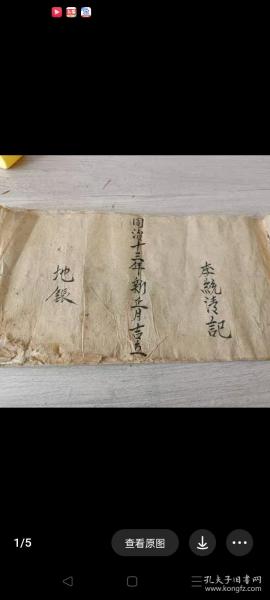 李統清記
同治十三年新正月吉立
地銀
1/5
查看原图
孔夫子旧书网
www.kongfz.com